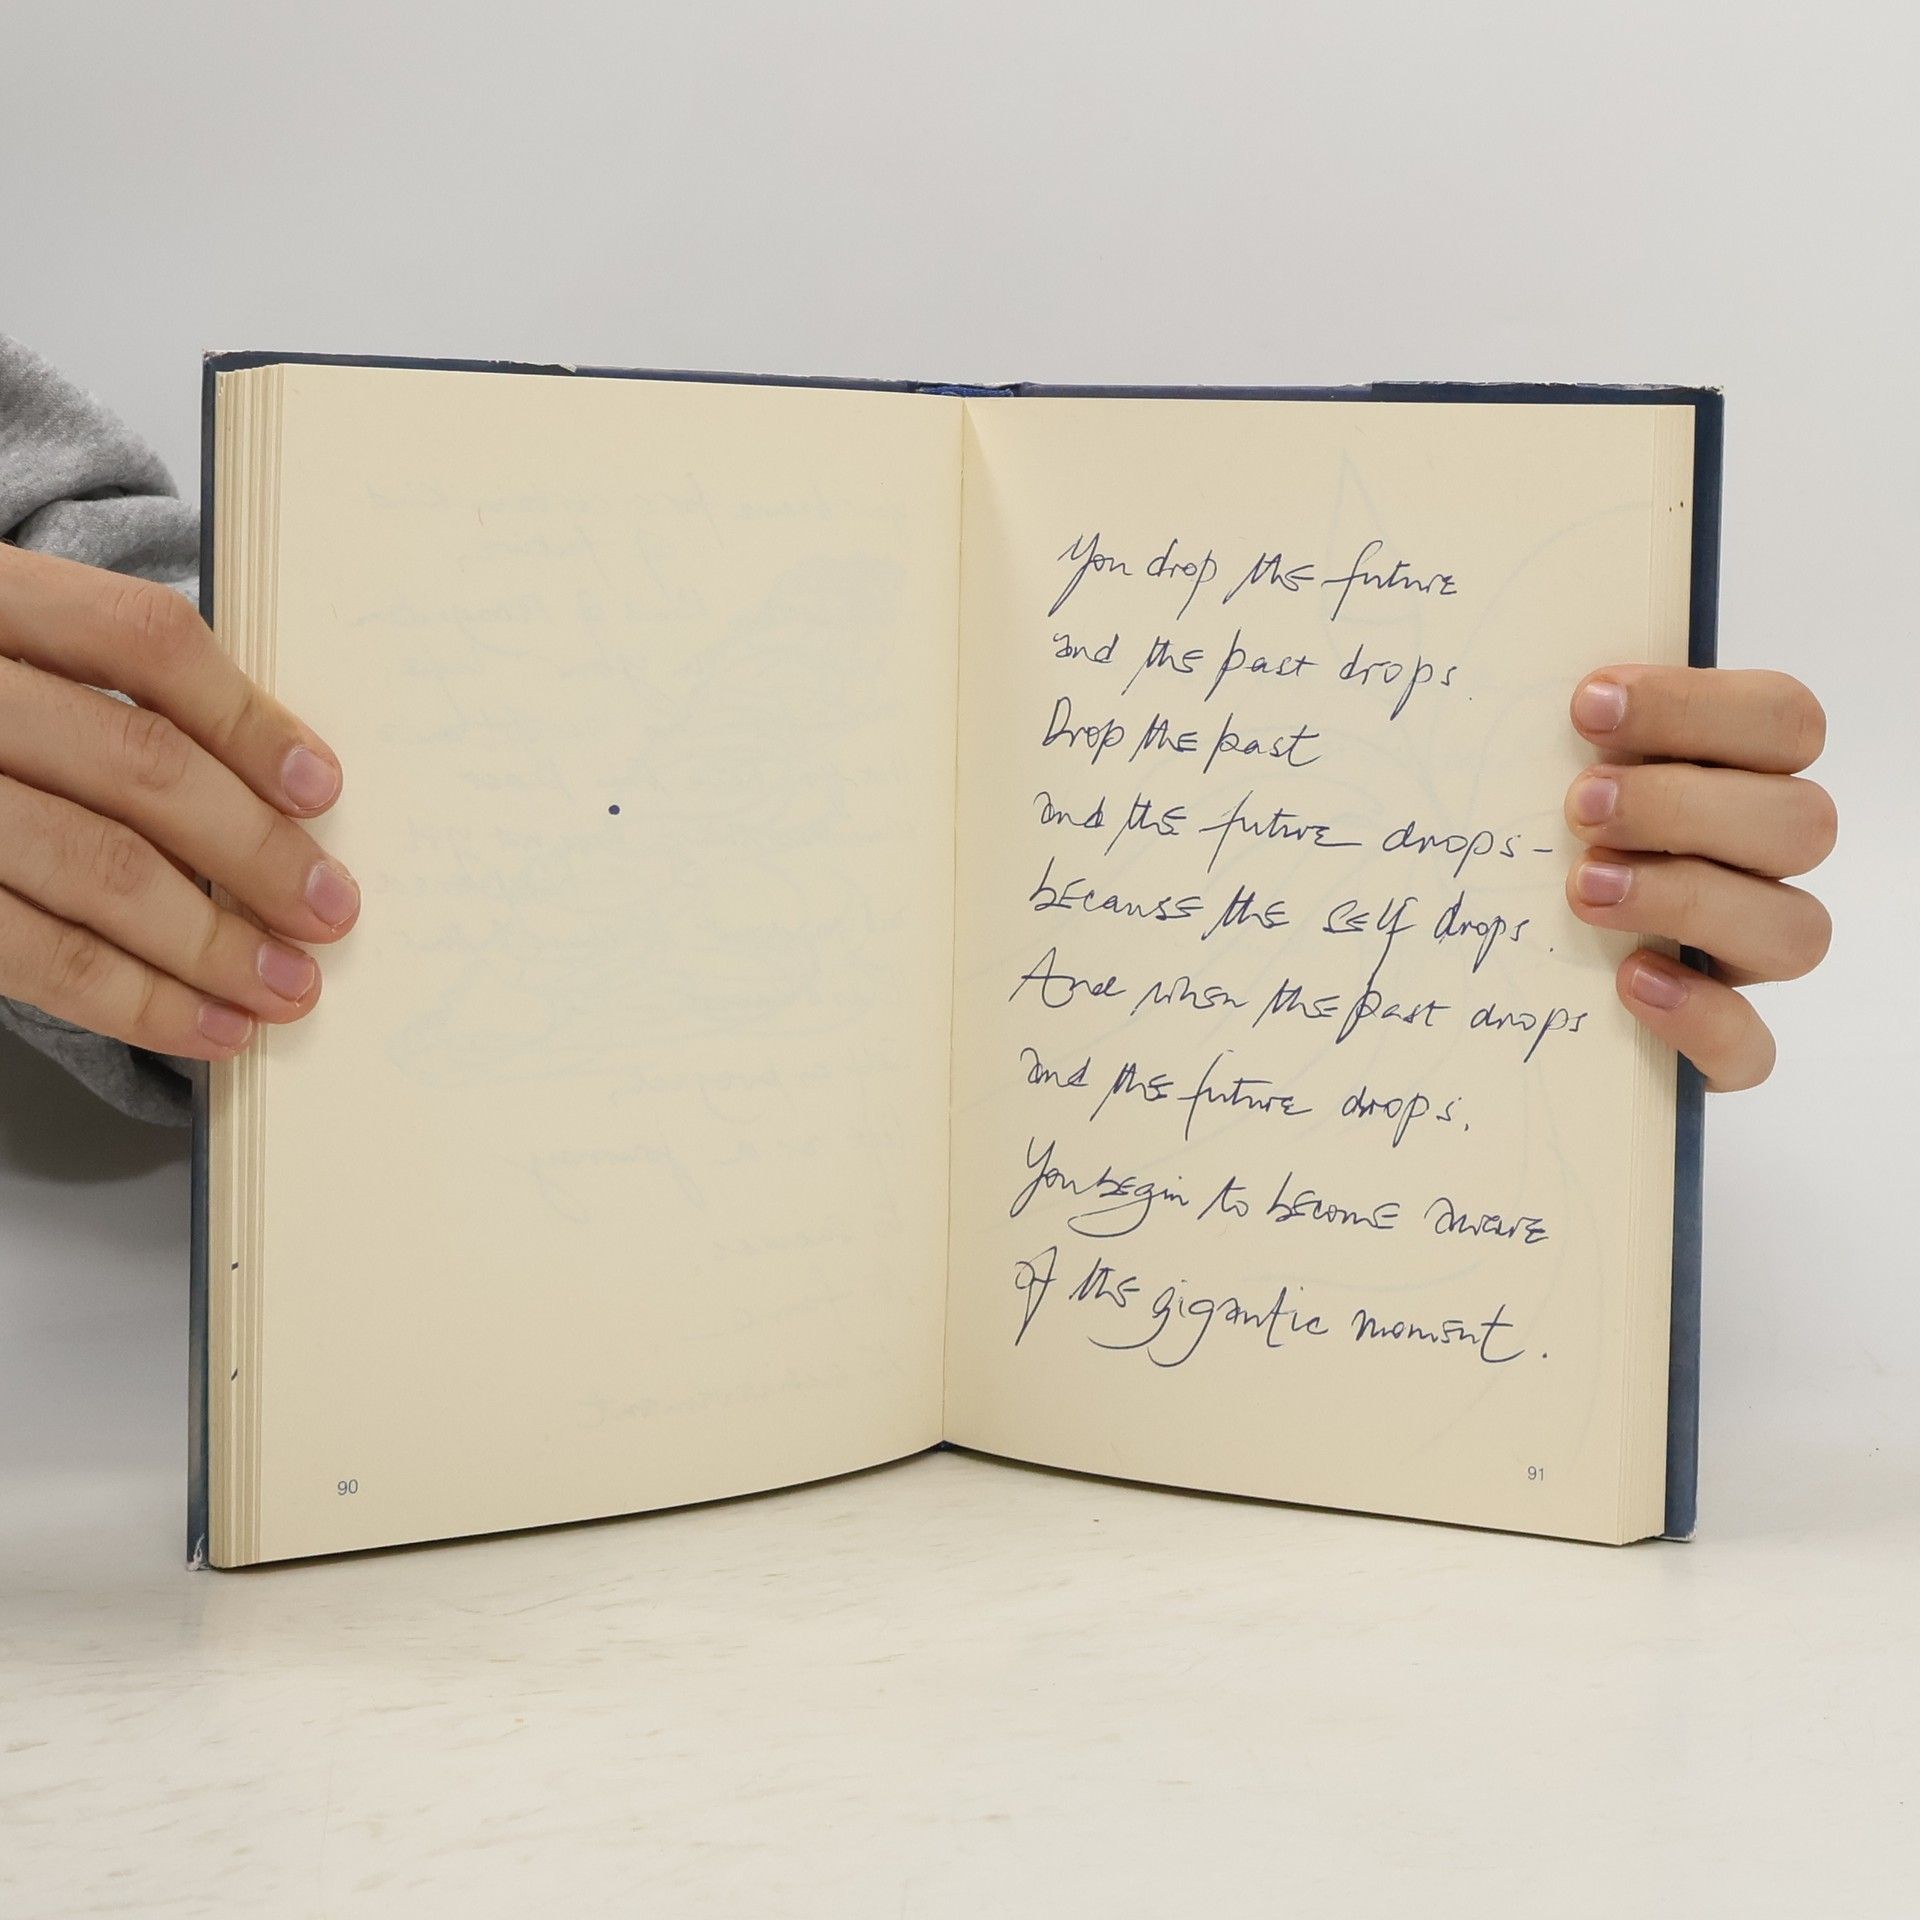 You drop the future
and the past drops.
Drop the past
and the future drops-
because the self drops.
And when the past drops
and the future drops.
You begin to become aware
of the gigantic moment.
90
91